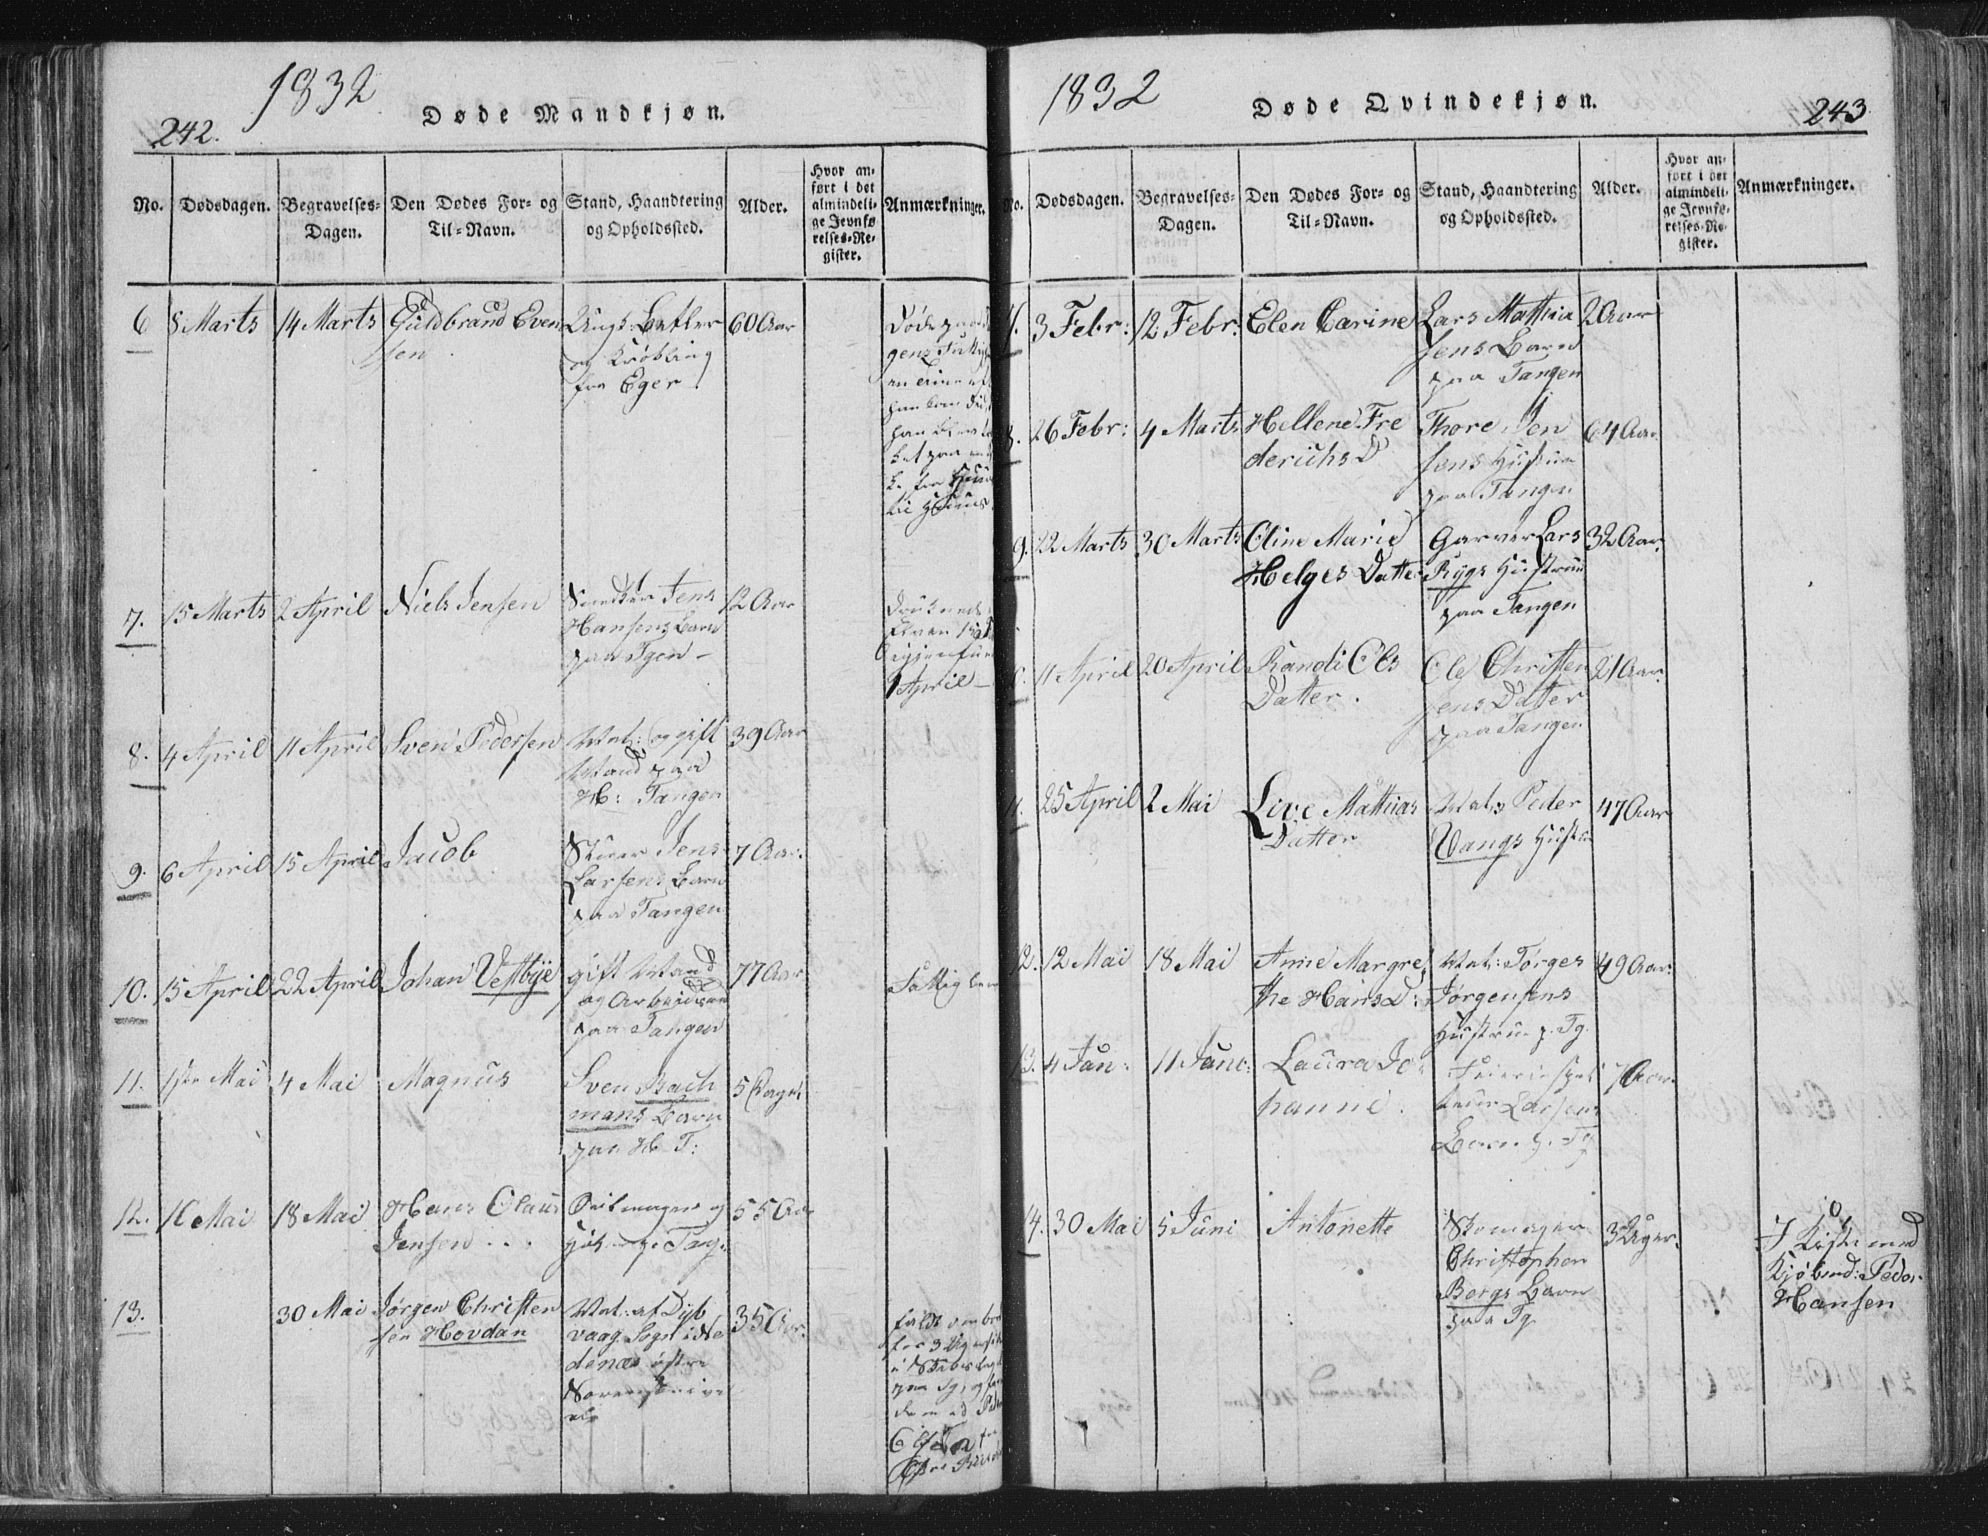 1832
242.
Døde Mandkjøn.
No.
Dødsdagen.
Begravelses-
Dagen.
Den Dødes For- og
Til-Navn.
Stand, Haandtering
og Opholdssted.
Alder.
Hvor an-
ført i det
almindeli-
ge Jevnfø-
relses-Re-
gister.
Anmærkninger.
6
8 Marts
14 Marts
Guldbrand Even
sen
60 Aar
og Krøbling
fra Eger
7.
15 Marts
2 April
Niels Jensen
Snedker Jens
Hansens Barn
paa Tgen
12 Aar
1 April
8.
4 April
11 April
Sven Pedersen
Mat: og gift
Mand paa
H: Tangen
39 Aar
9.
6 April
15 April
Jacob
Jens
Larsens Barn
paa Tangen
7 Aar
10.
15 April
22 April
Johan Vestbye
gift Mand
og Arbeidsm
paa Tangen
77 Aar
11.
1ste Mai
4 Mai
Magnus
Sven Bach
mans Barn
paa H T:
5 Dage
12.
16 Mai
18 Mai
Hans Claus
Jensen
55 Aar
13.
30 Mai
Jørgen Christen
sen Hovdan
Mat: af Dyb
vaag Sogn i Ne
denæs østre
35 Aar
1832
243
Døde Qvindekjøn.
No.
Dødsdagen.
Begravelses-
Dagen.
Den Dødes For- og
Til-Navn.
Stand, Haandtering
og Opholdssted.
Alder.
Hvor an-
ført i det
almindeli-
ge Jevnfø-
relses-Re-
gister.
Anmærkninger.
7.
3 Febr:
12 Febr:
Elen Carine
Lars Mathia
sens Barn
paa Tangen
2 Aar
8.
26 Febr:
4 Marts
Hellene Fre
derichs D
Thore Jen
sens Hustrue
paa Tangen
64 Aar
9.
22 Marts
30 Marts
Oline Marie
Helges Datter
Garver Lars
Rygs Hustrue
paa Tangen
32 Aar
11 April
20 April
Randi Ols
Datter.
Ole Christen
sens Datter
paa Tangen
21 Aar
11.
25 April
2 Mai
Live Mathias
Datter
Mats Peder
Vangs Hustru
47 Aar
12.
12 Mai
18 Mai
Anne Margre
the Hans D:
Mat: Tørges
Jørgensens
Hustrue p. Tg.
49 Aar
13.
4 Jun:
11 Juni:
Laura Jo
hanne.
Larsens
Barn p. Tg
7 Aar
14.
30 Mai
5 Juni
Antonette
Skomager
Christopher
Borgs Barn
paa Tg
3 Uger.
I Kiste med
Kjøbmd: Peder
Hansen